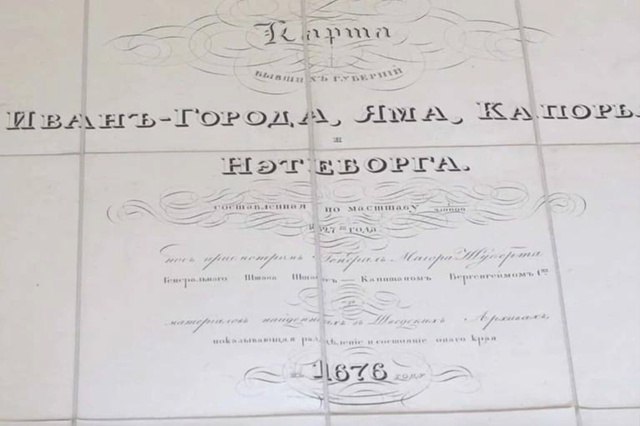 Карта
БЫВШИХЪ ГУБЕРНІЙ
ИВАНЪ-ГОРОДА, ЯМА, КАПОРЬ
и
НЭТЕБОРГА.
составленная по масштабу
1827 года
подъ присмотромъ Генералъ-Маіора Шуберта
Генеральнаго Штаба Штабсъ — Капитаномъ Бергенгеймомъ 1ᵐᵒ
матеріаловъ найденныхъ въ Шведскихъ Архивахъ,
показывающая раздѣленіе и состояніе онаго края
въ 1676 году